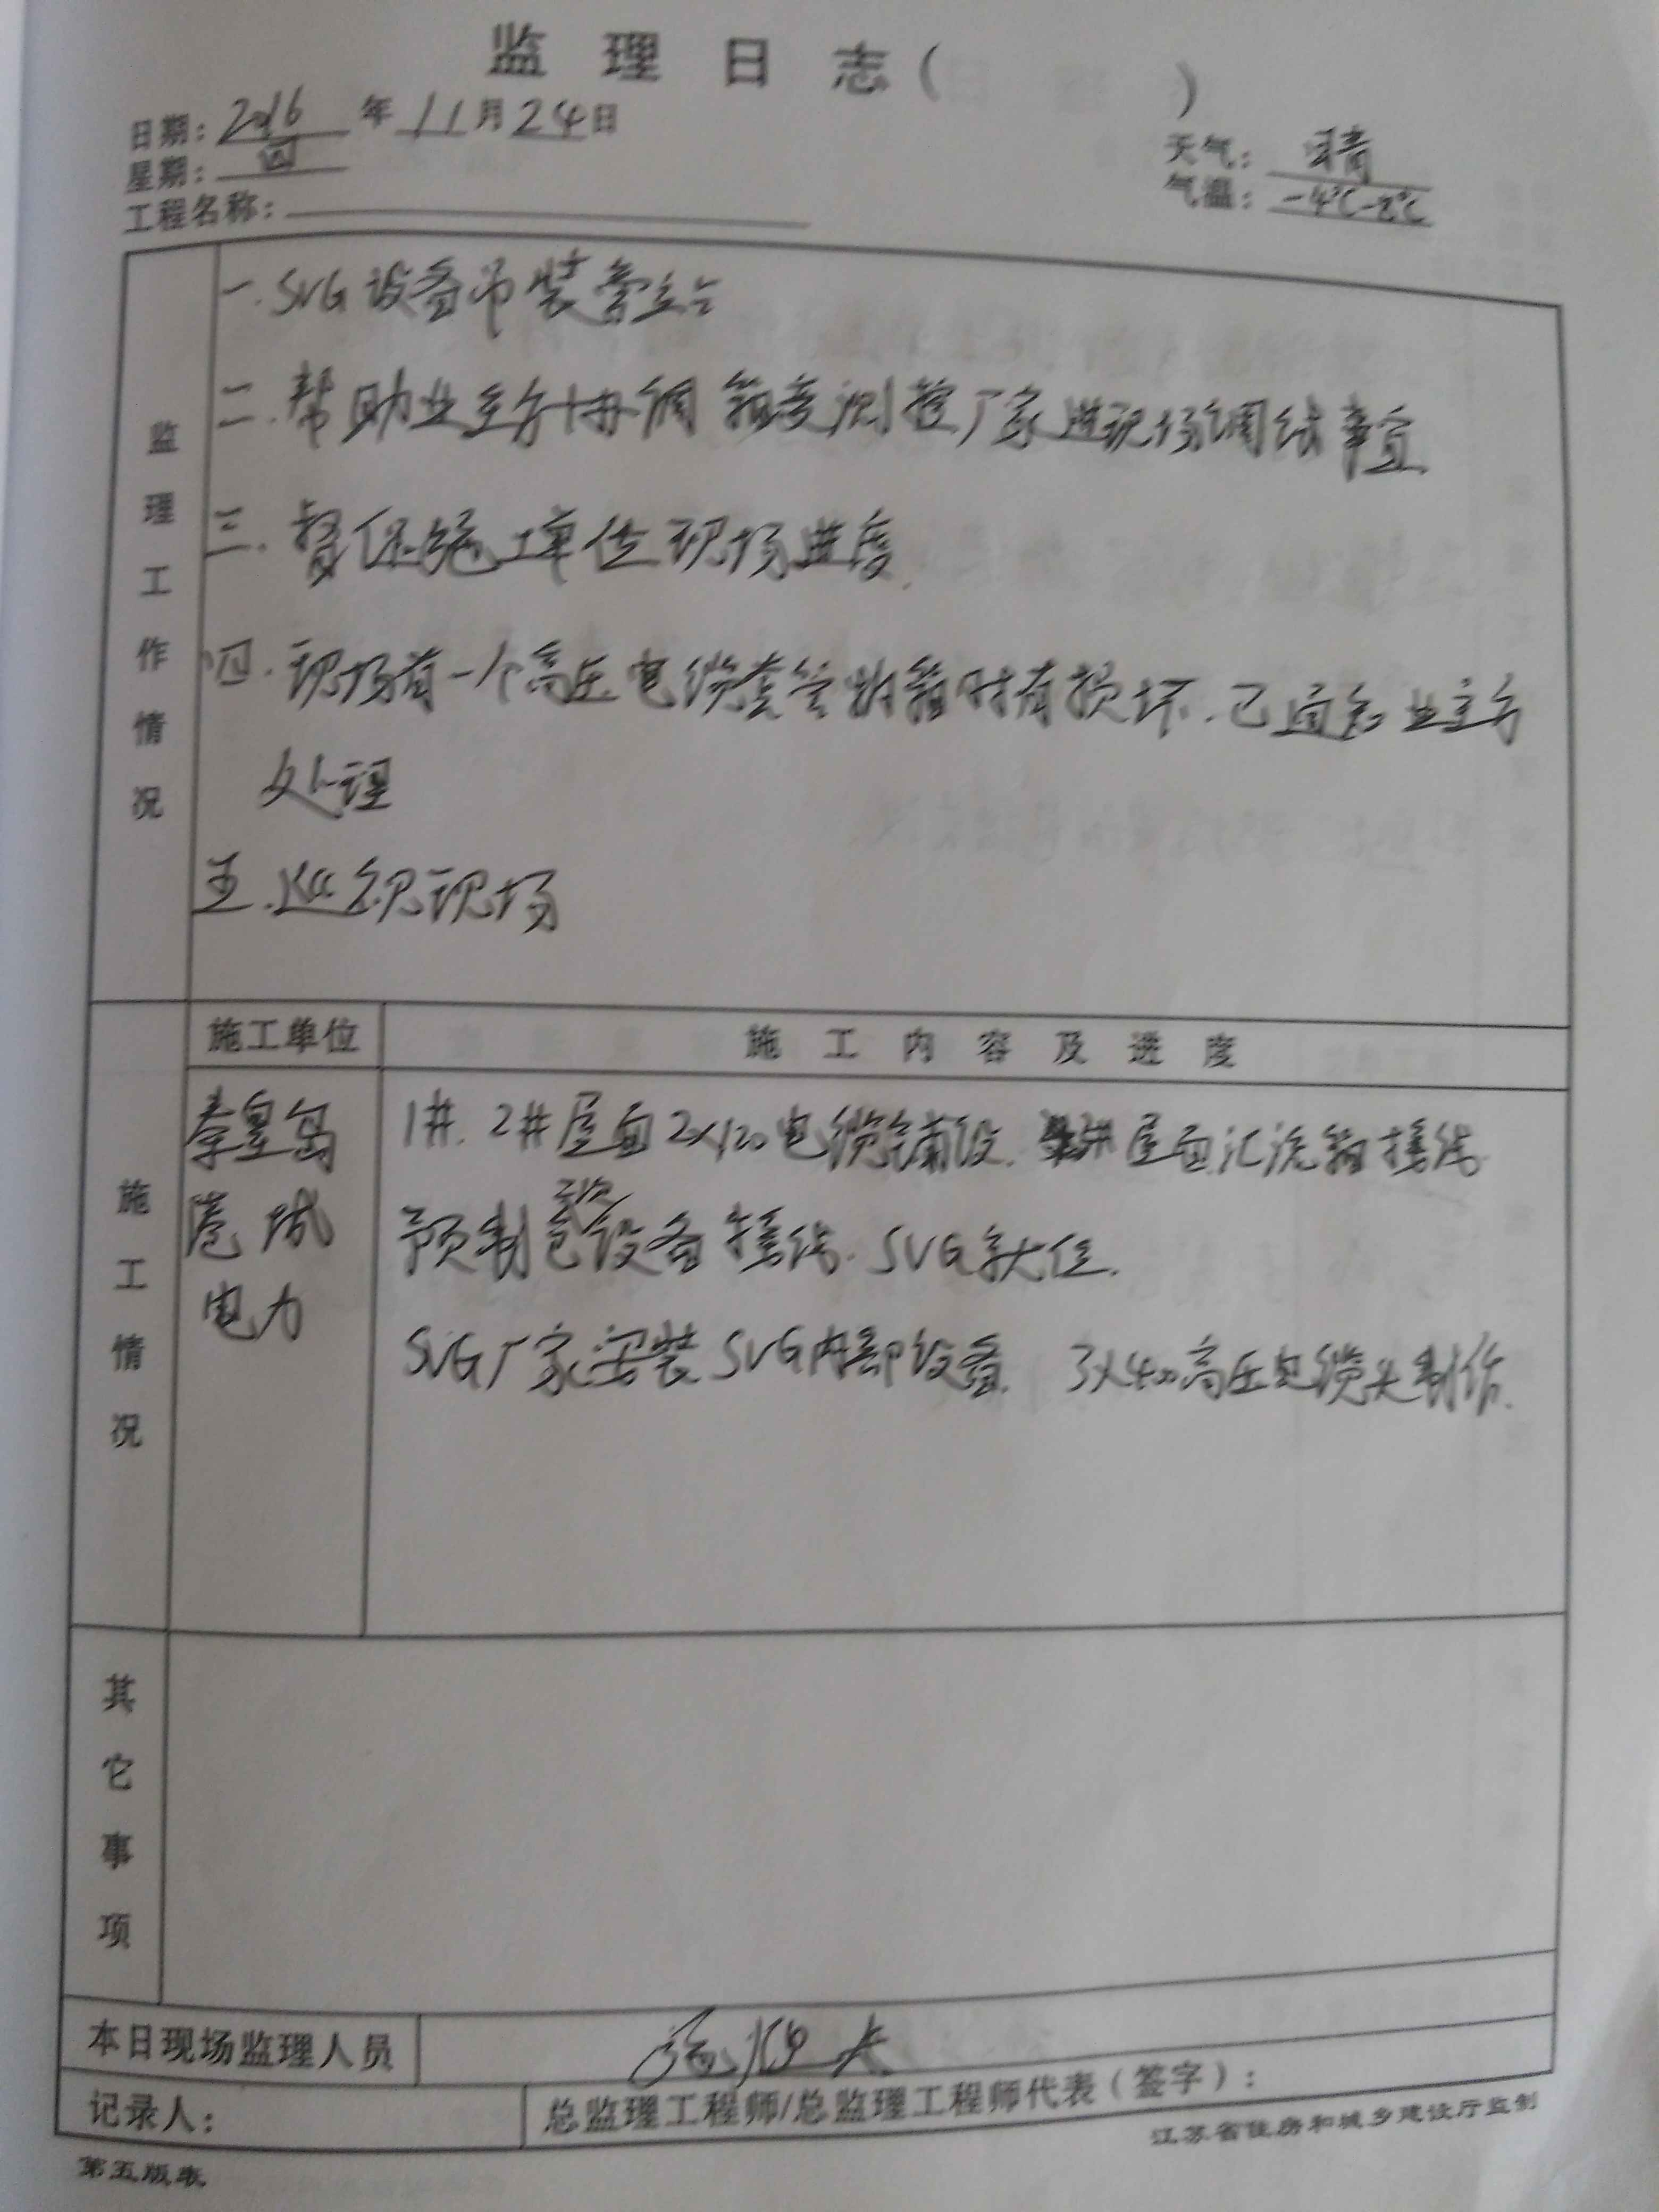 监理日志(　　)
日期: 2016年11月24日
天气: 晴
星期: 四
气温: -4℃-8℃
工程名称:
监理工作情况
一.SVG设备吊装旁站
二.帮助业主方协调箱变测控厂家进现场调线事宜
三.督促施工单位现场进度.
四.现场有一个高压电缆套管 时有损坏.已通知业主方
处理
五.巡视现场
施工情况
施工单位
施工内容及进度
秦皇岛
港城
电力
1#.2#屋面2×120电缆铺设. 屋面汇流箱接线
预制舱设备接线.SVG就位.
SVG厂家安装SVG内部设备. 3×400高压电缆头制作.
其它事项
本日现场监理人员
记录人:
总监理工程师/总监理工程师代表(签字):
第五版表
江苏省住房和城乡建设厅监制